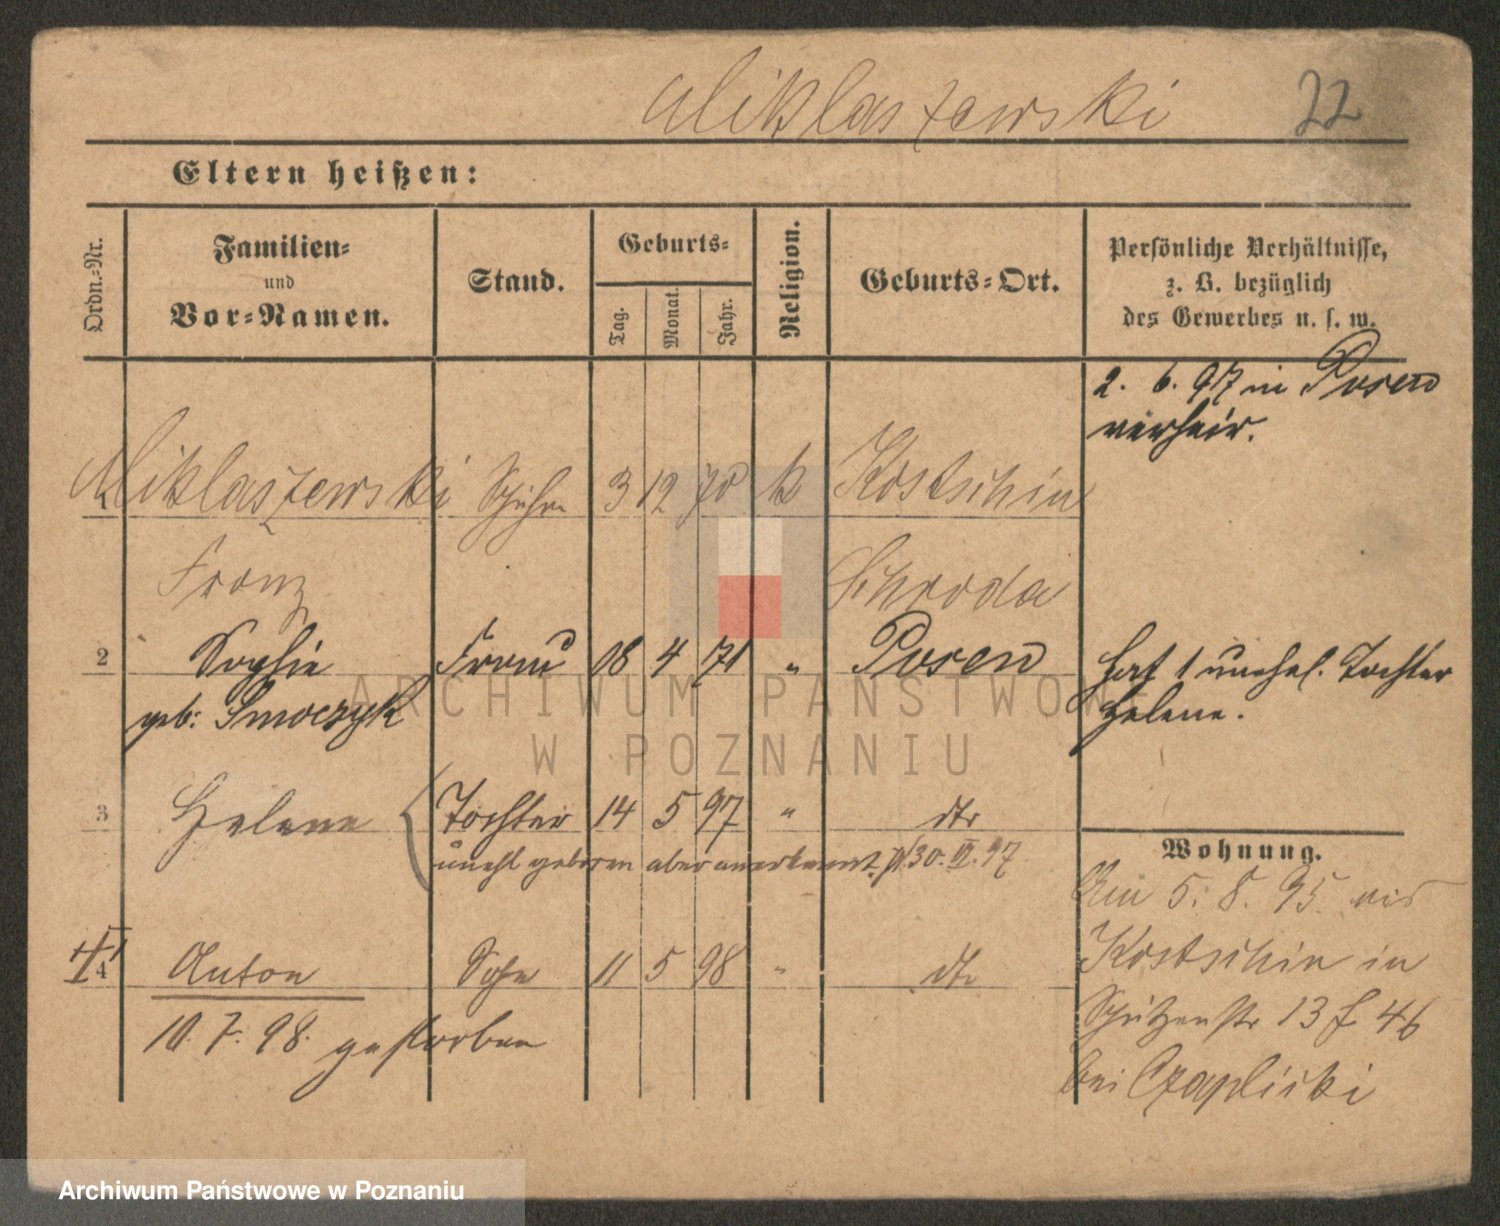 Miklaszewski 22
Eltern heißen:
Ordn.-Nr.
Familien-
und
Vor-Namen.
Stand.
Geburts-
Tag.
Monat.
Jahr.
Religion.
Geburts-Ort.
Persönliche Verhältnisse,
z. B. bezüglich
des Gewerbes u. s. w.
2. 6. 97 in Posen
verheir.
1 Miklaszewski 3 12 70 k Kostschin
Franz Schroda
2 Sophie Frau 18 4 71 " Posen
geb: Smoczyk
hat 1 unehel. Tochter
Helene.
3 Helene Tochter 14 5 97 " dto
unehl geboren aber anerkannt. 30. VI. 97
4 Anton Sohn 11 5 98 " dto
10. 7. 98. gestorben
Wohnung.
Am 5. 8. 95 aus
Kostschin in
Schützenstr 13 f. 46
bei Czaplicki
ARCHIWUM PAŃSTWOW
W POZNANIU
Archiwum Państwowe w Poznaniu